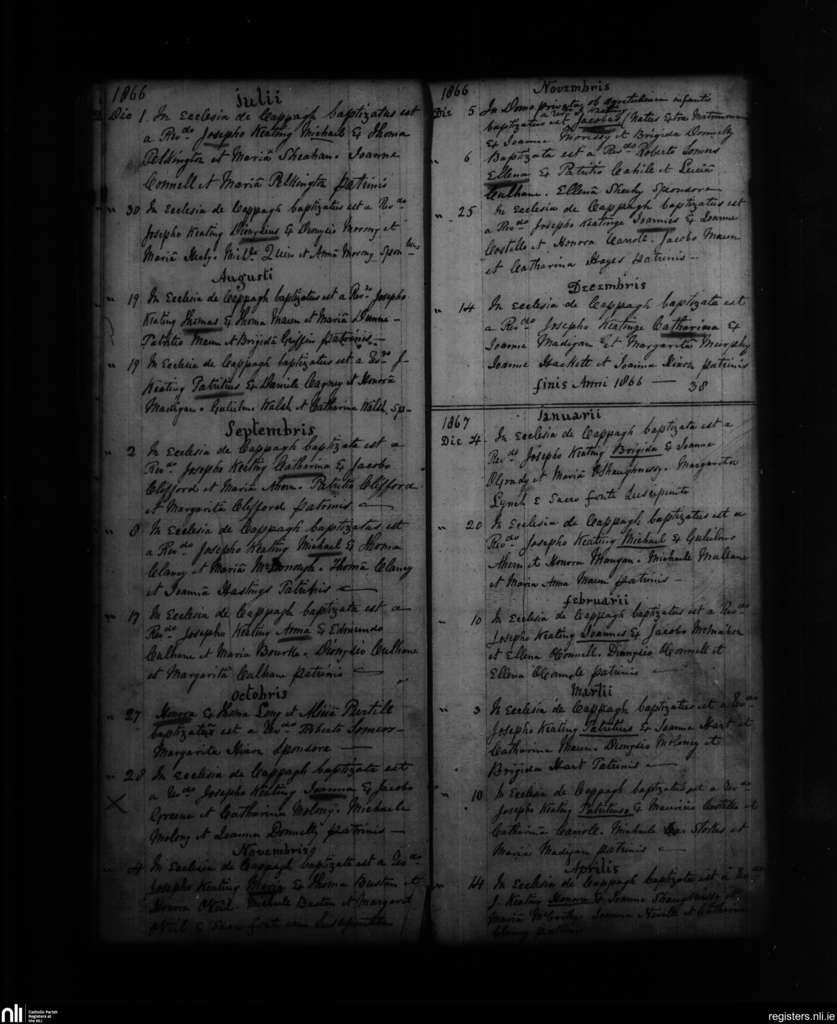 1866
Julii
Die 1. In Ecclesia de Cappagh baptizatus est
a Revdo Josepho Keating Michael E Thoma
Pilkington et Mariâ Sheahan. Joanne
Connell et Mariâ Pilkington patrinis
" 30 In Ecclesia de Cappagh baptizatus est a Revdo
Josepho Keating Dionysius E Dionysio Morony et
Mariâ Healy. Quin et Annâ Morony
Augusti
" 19 In Ecclesia de Cappagh baptizatus est a Revdo Josepho
Keating Thomas E Thoma Maun et Mariâ Dunne -
Patritio Maun et Brigidâ Griffin patrinis -
" 19 In Ecclesia de Cappagh baptizatus est a Revdo J
Keating Patritius Ex Daniele Cagney et Honorâ
Madigan. Gulielmo Walsh et Catharinâ Walsh Sp-
Septembris
" 2 In Ecclesia de Cappagh baptizata est a
Revdo Josepho Keating Catharina E Jacobo
Clifford et Mariâ Ahern. Patritio Clifford
et Margaritâ Clifford patrinis
" 8 In Ecclesia de Cappagh baptizatus est
a Revdo Josepho Keating Michael E Thoma
Clancy et Mariâ McDonough. Thomâ Clancy
et Joannâ Hastings Patrinis
" 17 In Ecclesia de Cappagh baptizata est a
Revdo Josepho Keating Anna E Edmundo
Culhane et Maria Bourke. Dionysio Culhane
et Margaritâ Culhane patrinis
Octobris
" 27 Honora Ex Thoma Long et
baptizata est a Revdo Roberto Somers -
Margarita Hixon Sponsore
" 28 In Ecclesia de Cappagh baptizata est
a Revdo Josepho Keating Joanna E Jacobo
Greene et Catharina Molony. Michaele
Molony et Joanna Donnelly patrinis
Novembris
" 4 In Ecclesia de Cappagh baptizata est a Revdo
Josepho Keating Maria E Thoma Bustin et
Honora O'Neil. Michaele Bustin et Margarit
O'Neil E Sacro fonte eam
1866
Novembris
Die 5 In Domo privata ob aegritudinem infantis
baptizatus est Jacobus Natus Extra Matrimonium
Ex Joanne Morrissy et Brigida Donnelly
" 6 Baptizata est a Revdo Roberto Somers
Ellena Ex Patritio Cahile et Luciâ
Culhane. Ellenâ Sheehy Sponsora
" 25 In Ecclesia de Cappagh baptizatus est
a Revdo Josepho Keatinge Joannes E Joanne
Costello et Honora Carole. Jacobo Maun
et Catharina Hayes patrinis -
Dezembris
" 14 In Ecclesia de Cappagh baptizata est
a Revdo Josepho Keatinge Catharina Ex
Joanne Madigan et Margarita Murphy
Joanne Hackett et Joanna Hixon patrinis
finis Anni 1866 — 38
1867
Januarii
Die 4. In Ecclesia de Cappagh baptizata est a
Revdo Josepho Keating Brigida E Joanne
O'Grady et Mariâ O'Shaughnessy. Margarita
Lynch E Sacro fonte Suscipiente
" 20 In Ecclesia de Cappagh baptizatus est a
Revdo Josepho Keating Michael E Gulielmo
Ahern et Honora Mangan. Michaele Mulhane
et Maria Anna Maun patrinis -
februarii
" 10 In Ecclesia de Cappagh baptizatus est a Revdo
Josepho Keating Joannes E Jacobo McMahon
et Ellena O'Connell. Dionysio O'Connell et
Ellena O'Connell patrinis
Martii
" 3 In Ecclesia de Cappagh baptizatus est a Revdo
Josepho Keating Patritius Ex Joanne Hart et
Catharina Maun. Dionysio Moloney et
Brigida Hart Patrinis
" 10 In Ecclesia de Cappagh baptizatus est a Revdo
Josepho Keating Patritius E Mauricio Costello et
Catharinâ Carole. Michaele Stokes et
Mariâ Madigan patrinis
Aprilis
" 14 In Ecclesia de Cappagh baptizata est a Revdo
J. Keating Honora E Joanne Shaughnessy et
Mariâ McCarthy. Joanne Neville et Catharina
patrinis
nli Catholic Parish
Registers at
the NLI
registers.nli.ie